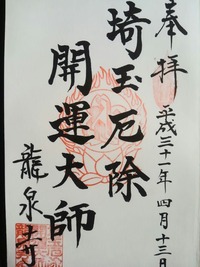 奉拝
平成三十一年四月十三日
埼玉厄除
開運大師
龍泉寺